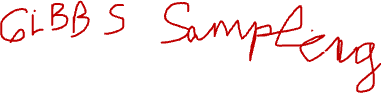 GiBBS Sampling